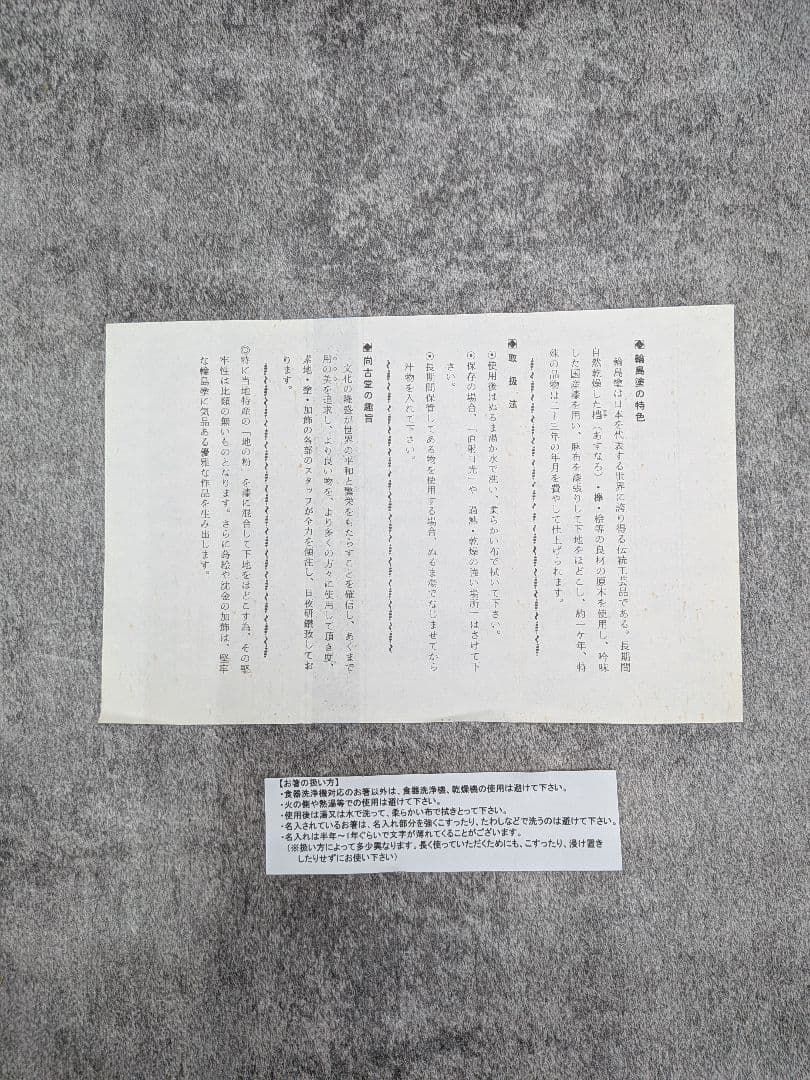 ◆輪島塗の特色
輪島塗は日本を代表する世界に誇り得る伝統工芸品である。長期間
自然乾燥した档(あすなろ)・欅・桧等の良材の原木を使用し、吟味
した国産漆を用い、麻布を漆張りして下地をほどこし、約一ケ年、特
殊の品物は二~三年の年月を費やして仕上げられます。
◆取扱法
⊙使用後はぬるま湯か水で洗い、柔らかい布で拭いて下さい。
⊙保存の場合、「直射日光」や「過熱・乾燥の強い場所」はさけて下
さい。
⊙長期間保管してある物を使用する場合、ぬるま湯でなじませてから
汁物を入れて下さい。
◆尚古堂の趣旨
文化の隆盛が世界の平和と繁栄をもたらすことを確信し、あくまで
用の美を追求し、より良い物を、より多くの方々に使用して頂き度、
素地・塗・加飾の各部のスタッフが全力を傾注し、日夜研鑽致してお
ります。
◎特に当地特産の「地の粉」を漆に混合して下地をほどこす為、その堅
牢性は比類の無いものとなります。さらに蒔絵や沈金の加飾は、堅牢
な輪島塗に気品ある優雅な作品を生み出します。
【お箸の扱い方】
・食器洗浄機対応のお箸以外は、食器洗浄機、乾燥機の使用は避けて下さい。
・火の側や熱湯等での使用は避けて下さい。
・使用後は湯又は水で洗って、柔らかい布で拭きとって下さい。
・名入されているお箸は、名入れ部分を強くこすったり、たわしなどで洗うのは避けて下さい。
・名入れは半年~1年ぐらいで文字が薄れてくることがございます。
(※扱い方によって多少異なります。長く使っていただくためにも、こすったり、浸け置き
したりせずにお使い下さい)